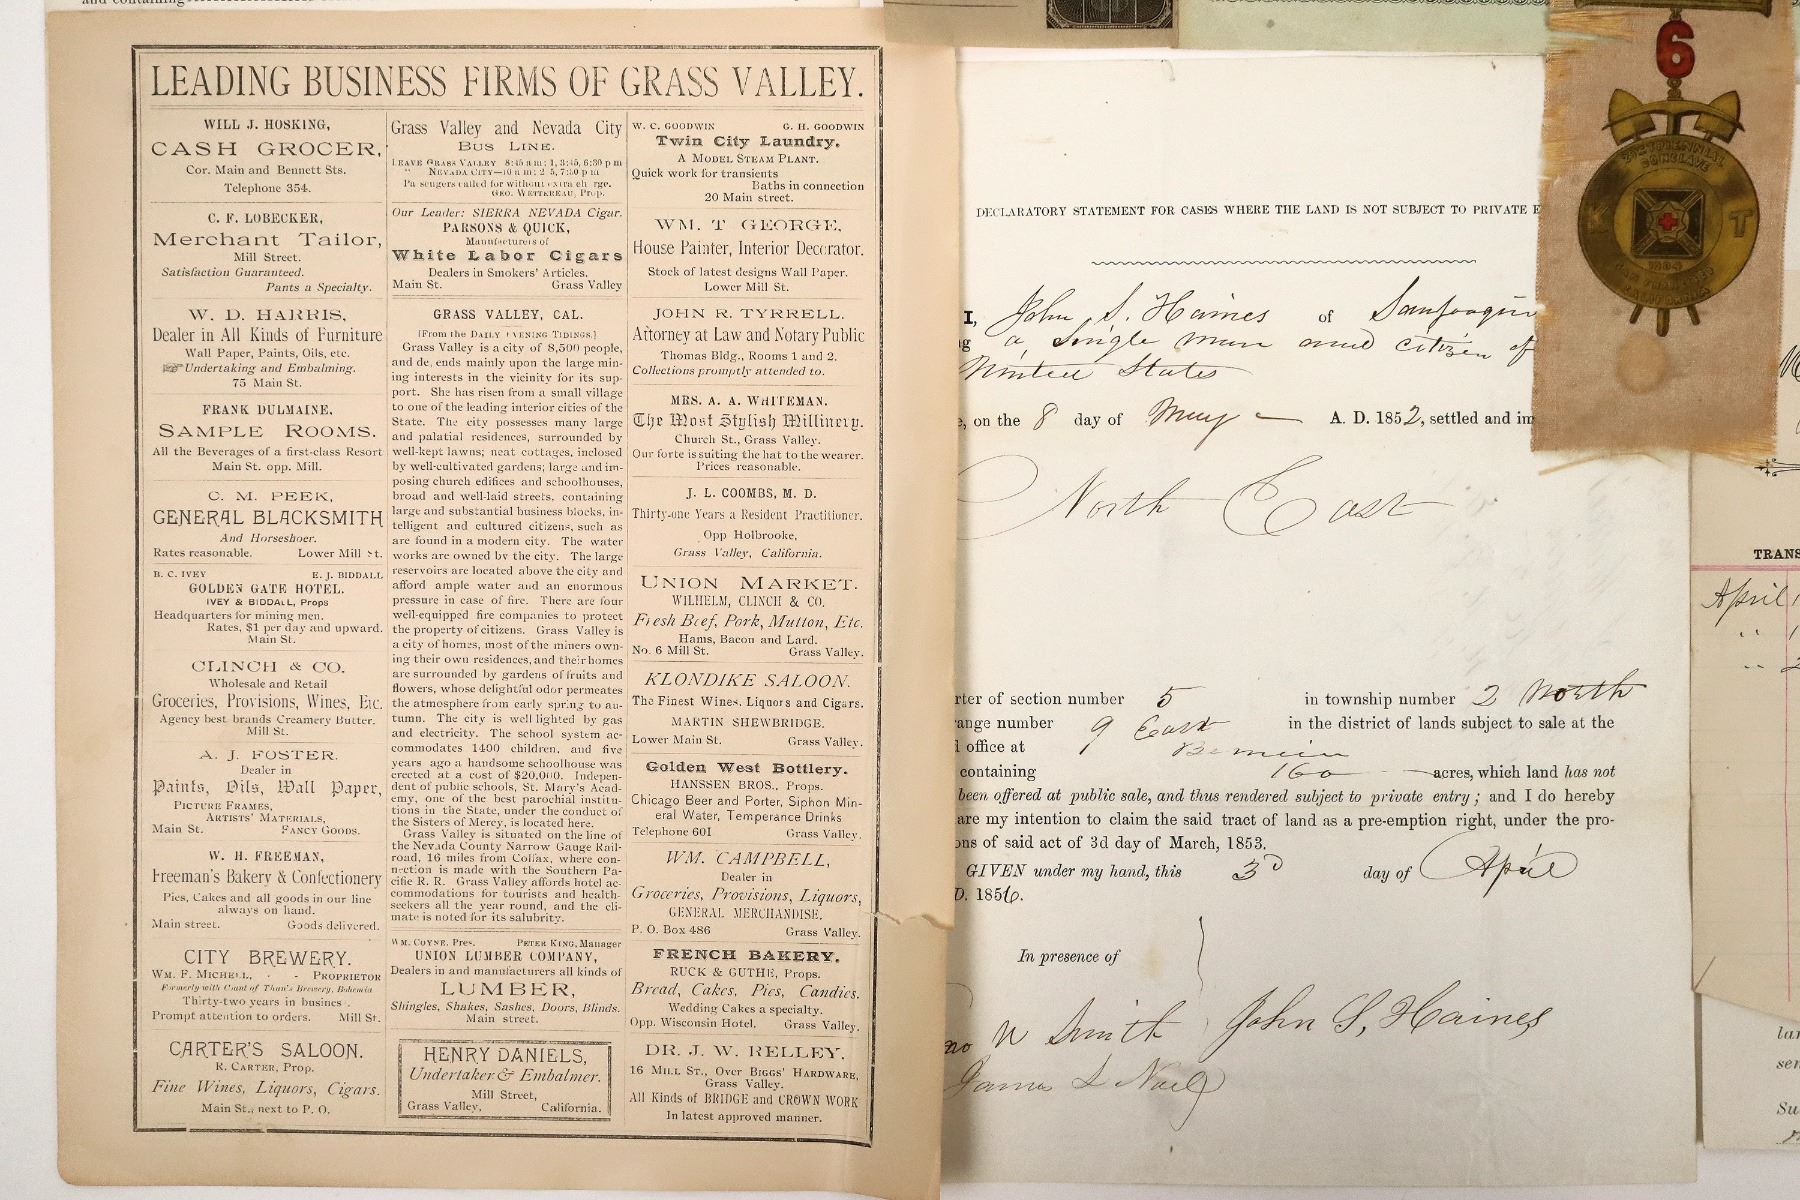 and containing
LEADING BUSINESS FIRMS OF GRASS VALLEY.
WILL J. HOSKING,
CASH GROCER,
Cor. Main and Bennett Sts.
Telephone 354.
C. F. LOBECKER,
Merchant Tailor,
Mill Street.
Satisfaction Guaranteed.
Pants a Specialty.
W. D. HARRIS,
Dealer in All Kinds of Furniture
Wall Paper, Paints, Oils, etc.
Undertaking and Embalming.
75 Main St.
FRANK DULMAINE,
SAMPLE ROOMS.
All the Beverages of a first-class Resort
Main St. opp. Mill.
C. M. PEEK,
GENERAL BLACKSMITH
And Horseshoer.
Rates reasonable. Lower Mill St.
B. C. IVEY E. J. BIDDALL
GOLDEN GATE HOTEL.
IVEY & BIDDALL, Props
Headquarters for mining men.
Rates, $1 per day and upward.
Main St.
CLINCH & CO.
Wholesale and Retail
Groceries, Provisions, Wines, Etc.
Agency best brands Creamery Butter.
Mill St.
A. J. FOSTER.
Dealer in
Paints, Oils, Wall Paper,
PICTURE FRAMES,
ARTISTS' MATERIALS,
Main St. FANCY GOODS.
W. H. FREEMAN,
Freeman's Bakery & Confectionery
Pies, Cakes and all goods in our line
always on hand.
Main street. Goods delivered.
CITY BREWERY.
WM. F. MICHELL, - - PROPRIETOR
Formerly with Count of Than's Brewery, Bohemia
Thirty-two years in busines .
Prompt attention to orders. Mill St.
CARTER'S SALOON.
R. CARTER, Prop.
Fine Wines, Liquors, Cigars.
Main St., next to P. O.
Grass Valley and Nevada City
BUS LINE.
LEAVE GRASS VALLEY 8:45 a m; 1, 3:45, 6:30 p m
" NEVADA CITY—10 a m; 2 5, 7:30 p m
Pa sengers called for without extra ch rge.
GEO. WETTEREAU, Prop.
Our Leader: SIERRA NEVADA Cigar.
PARSONS & QUICK,
Manufacturers of
White Labor Cigars
Dealers in Smokers' Articles.
Main St. Grass Valley
GRASS VALLEY, CAL.
[From the DAILY EVENING TIDINGS.]
Grass Valley is a city of 8,500 people,
and de, ends mainly upon the large min-
ing interests in the vicinity for its sup-
port. She has risen from a small village
to one of the leading interior cities of the
State. The city possesses many large
and palatial residences, surrounded by
well-kept lawns; neat cottages, inclosed
by well-cultivated gardens; large and im-
posing church edifices and schoolhouses,
broad and well-laid streets, containing
large and substantial business blocks, in-
telligent and cultured citizens, such as
are found in a modern city. The water
works are owned by the city. The large
reservoirs are located above the city and
afford ample water and an enormous
pressure in case of fire. There are four
well-equipped fire companies to protect
the property of citizens. Grass Valley is
a city of homes, most of the miners own-
ing their own residences, and their homes
are surrounded by gardens of fruits and
flowers, whose delightful odor permeates
the atmosphere from early spring to au-
tumn. The city is well lighted by gas
and electricity. The school system ac-
commodates 1400 children, and five
years ago a handsome schoolhouse was
erected at a cost of $20,000. Indepen-
dent of public schools, St. Mary's Acad-
emy, one of the best parochial institu-
tions in the State, under the conduct of
the Sisters of Mercy, is located here.
Grass Valley is situated on the line of
the Nevada County Narrow Gauge Rail-
road, 16 miles from Colfax, where con-
nection is made with the Southern Pa-
cific R. R. Grass Valley affords hotel ac-
commodations for tourists and health-
seekers all the year round, and the cli-
mate is noted for its salubrity.
WM. COYNE, Pres. PETER KING, Manager
UNION LUMBER COMPANY,
Dealers in and manufacturers all kinds of
LUMBER,
Shingles, Shakes, Sashes, Doors, Blinds.
Main street.
HENRY DANIELS,
Undertaker & Embalmer.
Mill Street,
Grass Valley, California.
W. C. GOODWIN G. H. GOODWIN
Twin City Laundry.
A MODEL STEAM PLANT.
Quick work for transients
Baths in connection
20 Main street.
WM. T GEORGE,
House Painter, Interior Decorator.
Stock of latest designs Wall Paper.
Lower Mill St.
JOHN R. TYRRELL.
Attorney at Law and Notary Public
Thomas Bldg., Rooms 1 and 2.
Collections promptly attended to.
MRS. A. A. WHITEMAN.
The Most Stylish Millinery.
Church St., Grass Valley.
Our forte is suiting the hat to the wearer.
Prices reasonable.
J. L. COOMBS, M. D.
Thirty-one Years a Resident Practitioner.
Opp Holbrooke,
Grass Valley, California.
UNION MARKET.
WILHELM, CLINCH & CO.
Fresh Beef, Pork, Mutton, Etc.
Hams, Bacon and Lard.
No. 6 Mill St. Grass Valley.
KLONDIKE SALOON.
The Finest Wines, Liquors and Cigars.
MARTIN SHEWBRIDGE.
Lower Main St. Grass Valley.
Golden West Bottlery.
HANSSEN BROS., Props.
Chicago Beer and Porter, Siphon Min-
eral Water, Temperance Drinks
Telephone 601 Grass Valley.
WM. CAMPBELL,
Dealer in
Groceries, Provisions, Liquors,
GENERAL MERCHANDISE.
P. O. Box 486 Grass Valley.
FRENCH BAKERY.
RUCK & GUTHE, Props.
Bread, Cakes, Pies, Candies.
Wedding Cakes a specialty.
Opp. Wisconsin Hotel. Grass Valley.
DR. J. W. RELLEY,
16 MILL ST., OVER BIGGS' HARDWARE,
Grass Valley.
All Kinds of BRIDGE and CROWN WORK
In latest approved manner.
DECLARATORY STATEMENT FOR CASES WHERE THE LAND IS NOT SUBJECT TO PRIVATE E
I, John S. Haines of Sanjoaquin
g a Single man and citizen of
United States
, on the 8 day of May A. D. 1852, settled and im
North East
rter of section number 5 in township number 2 North
ange number 9 East in the district of lands subject to sale at the
office at
containing 160 acres, which land has not
been offered at public sale, and thus rendered subject to private entry; and I do hereby
are my intention to claim the said tract of land as a pre-emption right, under the pro-
ons of said act of 3d day of March, 1853.
GIVEN under my hand, this 3d day of April
D. 1856.
In presence of
no W Smith John S. Haines
James L Nall
6
TRIENNIAL
CONCLAVE
K T
CALIFORNIA
TRANS
April 1
" 1
" 2
lan
sen
Su